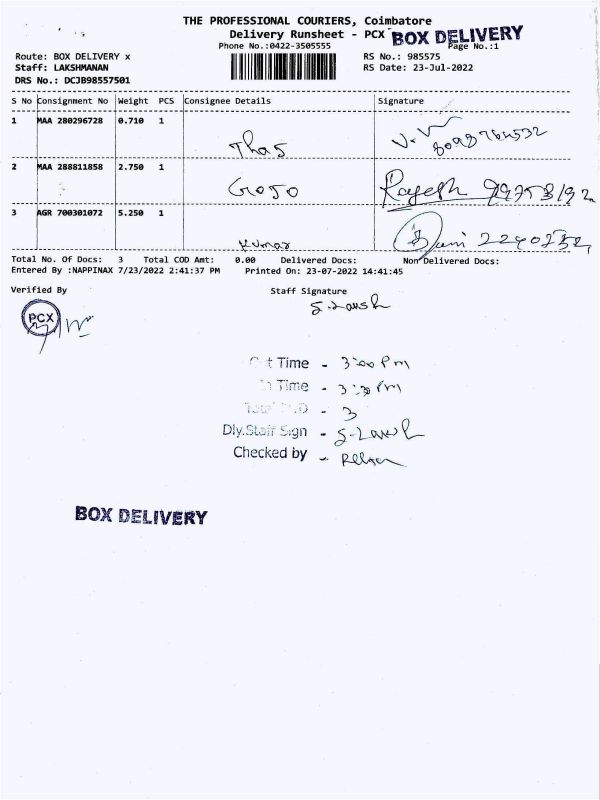 THE PROFESSIONAL COURIERS, Coimbatore
Delivery Runsheet - PCX BOX DELIVERY
Phone No.:0422-3505555 Page No.:1
Route: BOX DELIVERY x RS No.: 985575
Staff: LAKSHMANAN RS Date: 23-Jul-2022
DRS No.: DCJB98557501
S No Consignment No Weight PCS Consignee Details Signature
1 MAA 280296728 0.710 1
Thas
2 MAA 288811858 2.750 1
Rajesh
3 AGR 700301072 5.250 1
Kumar
Total No. Of Docs: 3 Total COD Amt: 0.00 Delivered Docs: Non Delivered Docs:
Entered By :NAPPINAX 7/23/2022 2:41:37 PM Printed On: 23-07-2022 14:41:45
Verified By Staff Signature
PCX
Time - 3:00 Pm
Time - 3:30 Pm
- 3
Dly.Staff Sign -
Checked by -
BOX DELIVERY